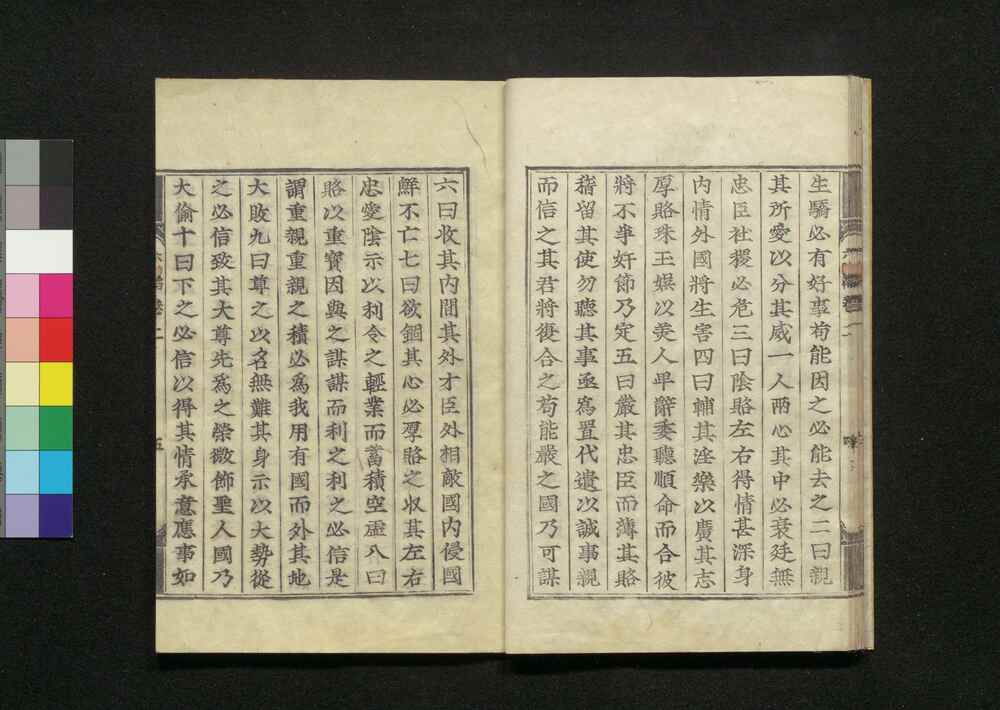 生驕必有好事苟能因之必能去之二曰親
其所愛以分其威一人兩心其中必衰廷無
忠臣社稷必危三曰陰賂左右得情甚深身
内情外國將生害四曰輔其淫樂以廣其志
厚賂珠玉娛以美人卑辭委聽順命而合彼
將不爭奸節乃定五曰嚴其忠臣而薄其賂
稽留其使勿聽其事亟爲置代遺以誠事親
而信之其君將復合之苟能嚴之國乃可謀
六曰收其内間其外才臣外相敵國内侵國
鮮不亡七曰欲錮其心必厚賂之收其左右
忠愛陰示以利令之輕業而蓄積空虛八曰
賂以重寶因與之謀謀而利之利之必信是
謂重親重親之積必爲我用有國而外其地
大敗九曰尊之以名無難其身示以大勢從
之必信致其大尊先爲之榮微飾聖人國乃
大偷十曰下之必信以得其情承意應事如
二
五